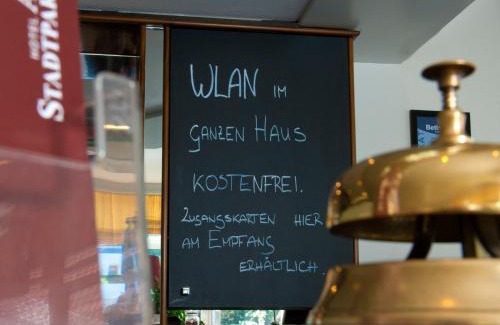 HOTEL A
STADTPAR
WLAN IM
GANZEN HAUS
KOSTENFREI.
ZUGANGSKARTEN HIER
AM EMPFANG
ERHÄLTLICH.